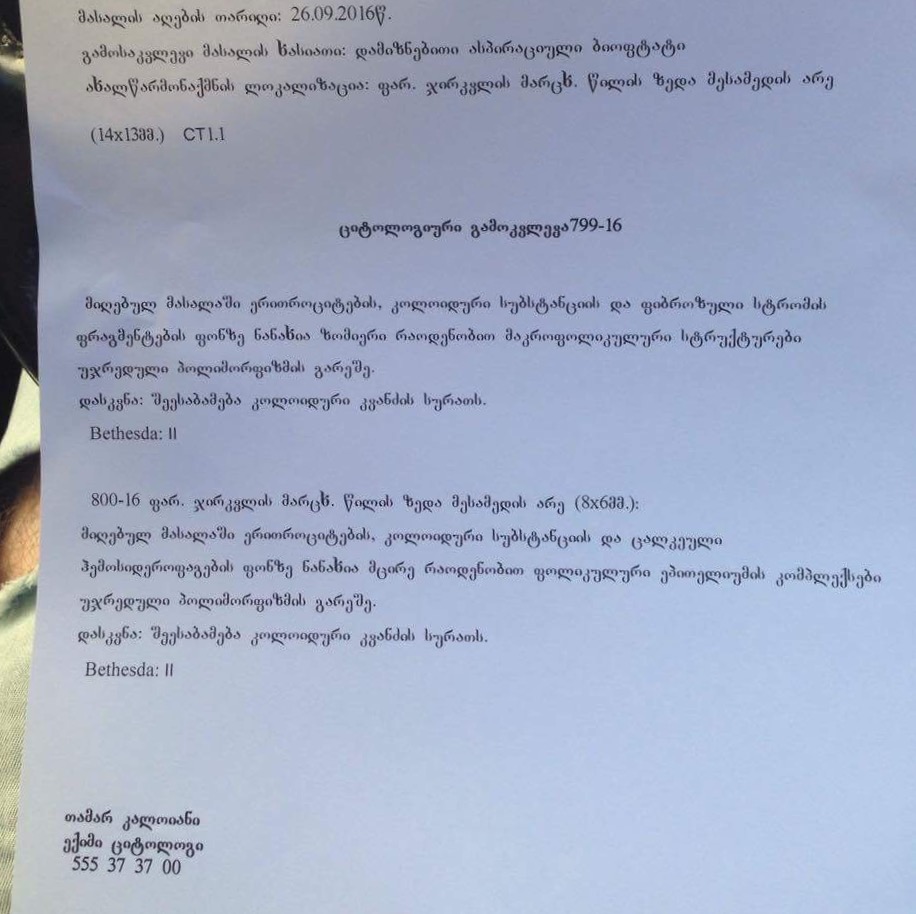 მასალის აღების თარიღი: 26.09.2016წ.
გამოსაკვლევი მასალის ხასიათი: დამიზნებითი ასპირაციული ბიოფტატი
ახალწარმონაქმნის ლოკალიზაცია: ფარ. ჯირკვლის მარცხ. წილის ზედა მესამედის არე
(14x13მმ.) CT1.1
ციტოლოგიური გამოკვლევა799-16
მიღებულ მასალაში ერითროციტების, კოლოიდური სუბსტანციის და ფიბროზული სტრომის
ფრაგმენტების ფონზე ნანახია ზომიერი რაოდენობით მაკროფოლიკულური სტრუქტურები
უჯრედული პოლიმორფიზმის გარეშე.
დასკვნა: შეესაბამება კოლოიდური კვანძის სურათს.
Bethesda: II
800-16 ფარ. ჯირკვლის მარცხ. წილის ზედა მესამედის არე (8x6მმ.):
მიღებულ მასალაში ერითროციტების, კოლოიდური სუბსტანციის და ცალკეული
ჰემოსიდეროფაგების ფონზე ნანახია მცირე რაოდენობით ფოლიკულური ეპითელიუმის კომპლექსები
უჯრედული პოლიმორფიზმის გარეშე.
დასკვნა: შეესაბამება კოლოიდური კვანძის სურათს.
Bethesda: II
თამარ კალოიანი
ექიმი ციტოლოგი
555 37 37 00